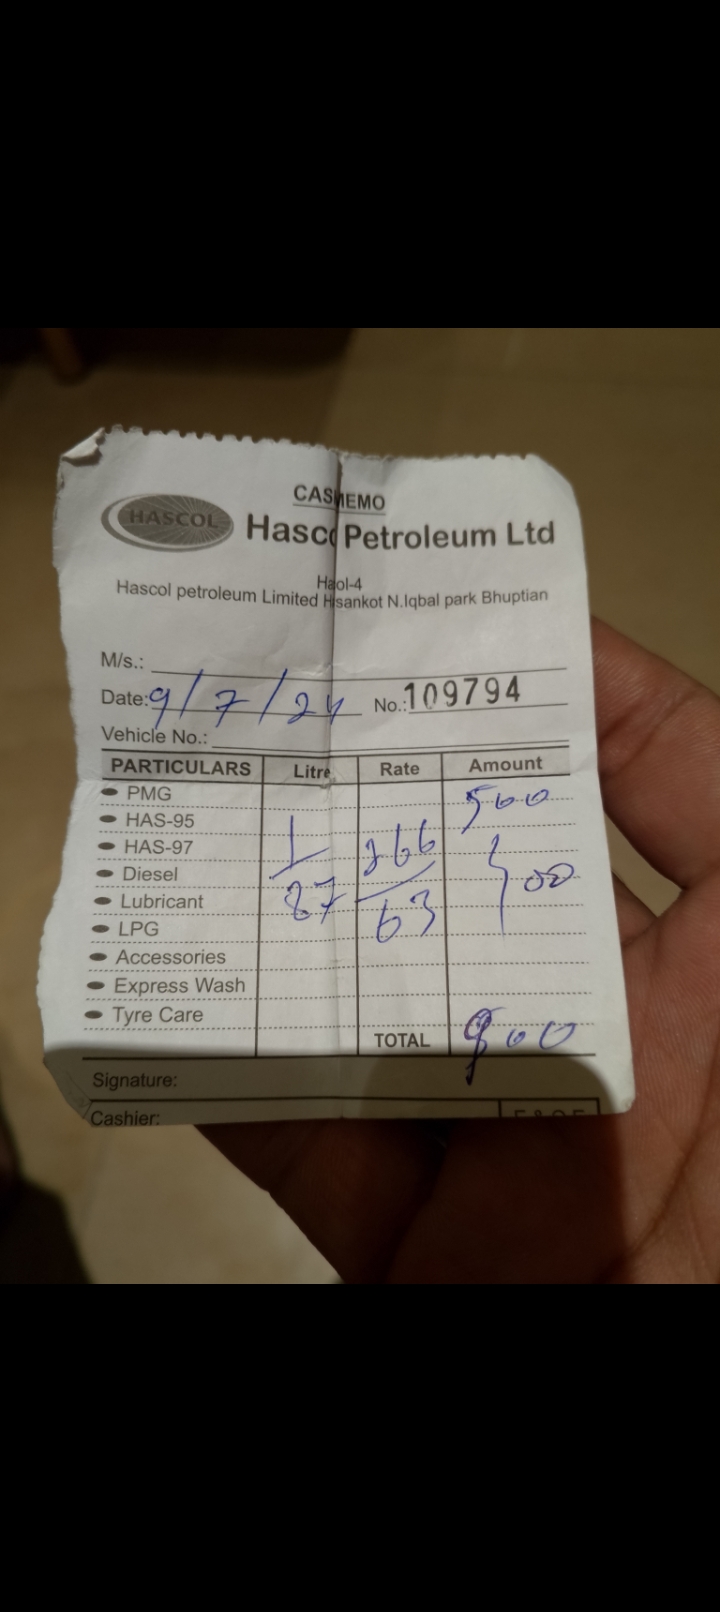 CASH MEMO
HASCOL
Hascol Petroleum Ltd
Hascol-4
Hascol petroleum Limited H sankot N.Iqbal park Bhuptian
M/s.:
Date: 9/7/24 No.: 109794
Vehicle No.:
PARTICULARS Litre Rate Amount
PMG 500
HAS-95
HAS-97 1 266
Diesel 00
Lubricant 87 63
LPG
Accessories
Express Wash
Tyre Care
TOTAL 500
Signature:
Cashier: